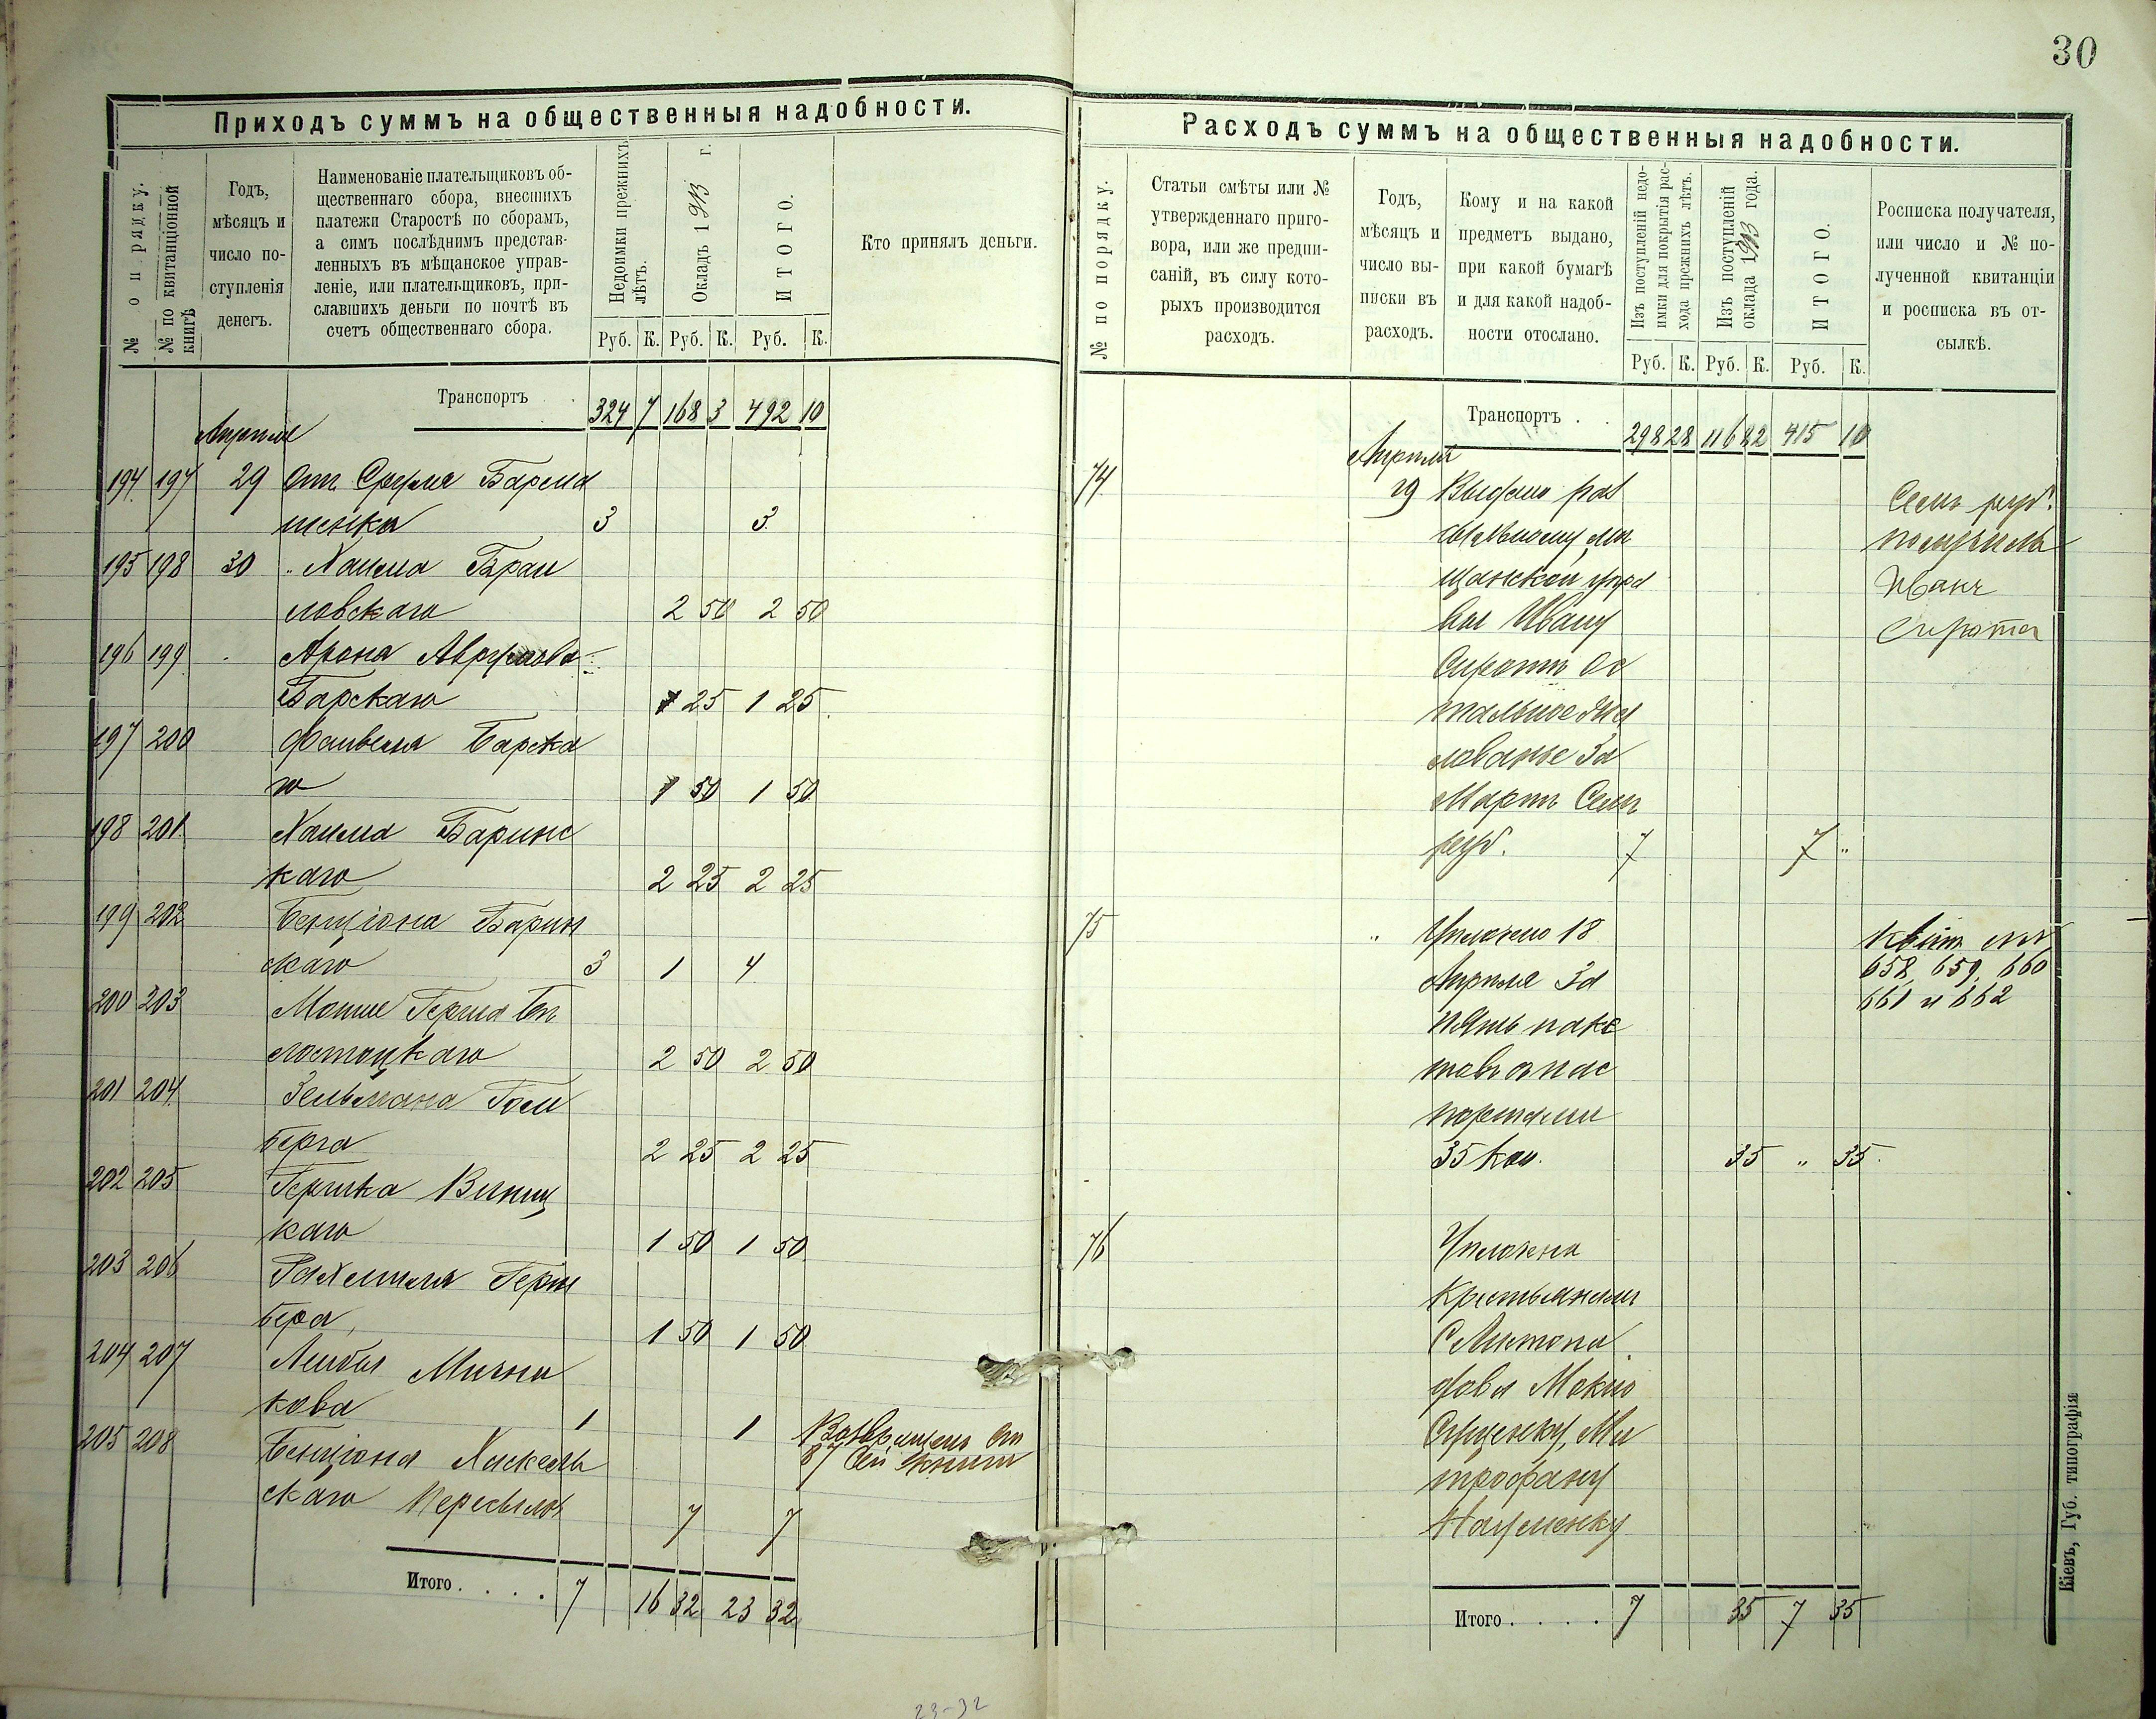 30
Приходъ суммъ на общественныя надобности.
№ по рядку.
№ по квитанціонной книгѣ
Годъ,
мѣсяцъ и
число по-
ступленія
денегъ.
Наименованіе плательщиковъ об-
щественнаго сбора, внесшихъ
платежи Старостѣ по сборамъ,
а симъ послѣднимъ представ-
ленныхъ въ мѣщанское управ-
леніе, или плательщиковъ, при-
славшихъ деньги по почтѣ въ
счетъ общественнаго сбора.
Недоимки прежнихъ
лѣтъ.
Окладъ 1913 г.
ИТОГО.
Кто принялъ деньги.
Руб. К. Руб. К. Руб. К.
Транспортъ 324 7 168 3 492 10
Апреля
194 197 29 Отъ Сруля Барша
шенка 3 3
195 198 30 " Хаима Браи
ловскаго 2 50 2 50
196 199 Арона
Барскаго 1 25 1 25
197 200 Файвеля Барска
го 1 50 1 50
198 201 Хаима Баринс
каго 2 25 2 25
199 202 Бенціона Барин
скаго 3 1 4
200 203 Мошке Герша Бѣ
лостоцкаго 2 50 2 50
201 204 Зельмана Гольд
берга 2 25 2 25
202 205 Гершка Виниц
каго 1 50 1 50
203 206 Рахмиля Герш
бера, 1 50 1 50
204 207 Лейбы Мични
кова 1 1
205 208 Бенціона Хаскель
скаго Пересылоч 7 7
Возвращено ст
87 сей книги
Итого . . . . 7 16 32 23 32
23-32
Расходъ суммъ на общественныя надобности.
№ по порядку.
Статьи смѣты или №
утвержденнаго приго-
вора, или же предпи-
саній, въ силу кото-
рыхъ производится
расходъ.
Годъ,
мѣсяцъ и
число вы-
писки въ
расходъ.
Кому и на какой
предметъ выдано,
при какой бумагѣ
и для какой надоб-
ности отослано.
Изъ поступленій недо-
имки для покрытія рас-
хода прежнихъ лѣтъ.
Изъ поступленій
оклада 1913 года.
ИТОГО.
Росписка получателя,
или число и № по-
лученной квитанціи
и росписка въ от-
сылкѣ.
Руб. К. Руб. К. Руб. К.
Транспортъ . . 298 28 116 82 415 10
Апреля
74 29 Выдано раз
сыльному мѣ
щанской упра
вы Ивану
Сиротѣ ос
тальное жа
лованье за
Мартъ Семь
руб. 7 7 "
Семь руб.
получилъ
Иванъ
Сирота
75 " Уплачено 18
Апреля за
пять паке
товъ с пас
портами
35 коп. 35 " 35
Квит №№
658, 659, 660
661 и 662
76 Уплачена
крестьянамъ
с
Сущенку, Ми
трофану
Науменку
Итого . . . . 7 35 7 35
Кіевъ, Губ. типографія